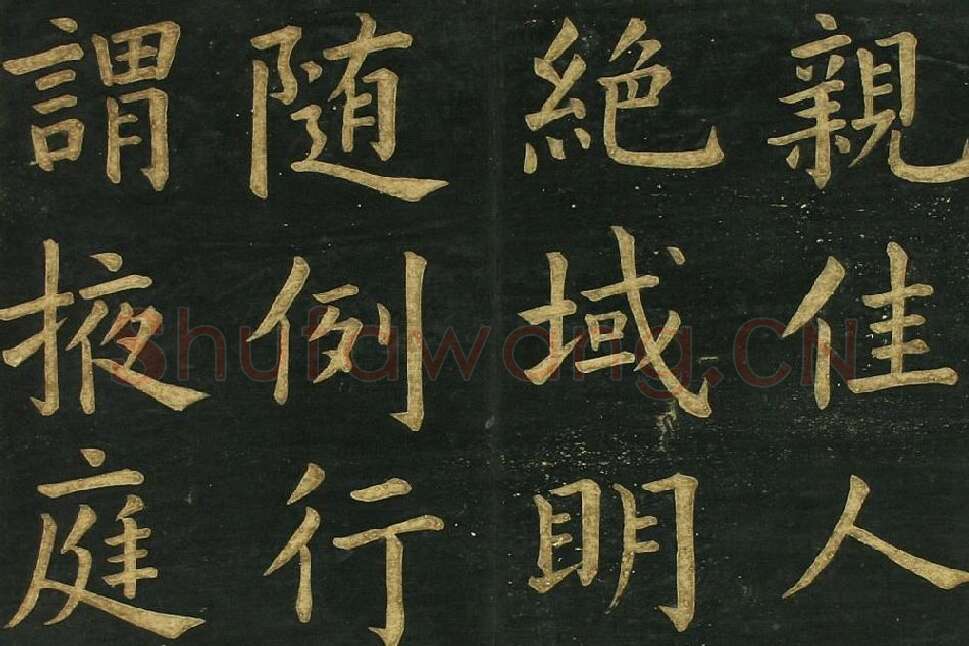 親佳人
絶域明
随例行
謂掖庭
shufawang.CN